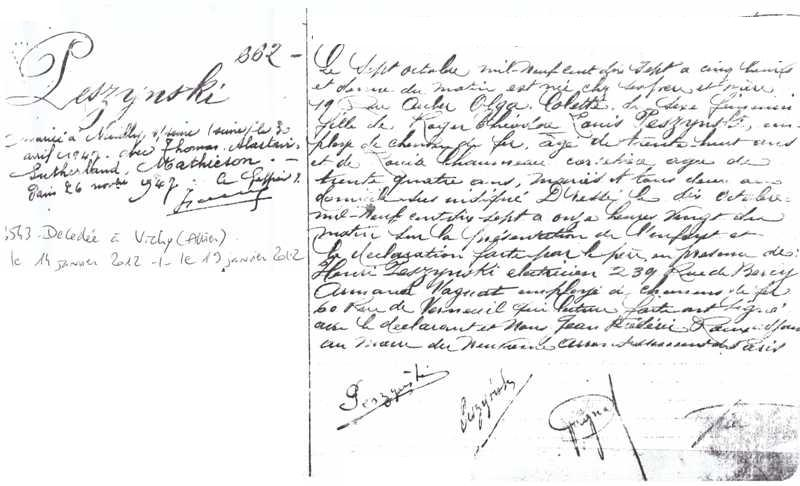 662 -
Peszynski
mariée à Neuilly s/seine (seine) le 3
avril 1947. avec Thomas Alastair
Sutherland. Mathieson. -
Paris 26 1947. Le Greffier
3543. Décédée à Vichy (Allier)
le 14 janvier 2012 -/- le 19 janvier 2012
Le Sept octobre mil-neuf cent dix Sept a cinq heures
et demie du matin est née, chez ses père et mère
Olga Colette du sexe féminin
fille de Roger Louis Peszynski, em-
ploye de chemin de fer, âgé de trente huit ans
et de Louisa Chausseau agee de
trente quatre ans, mariés
domicile sus indiqué Dressé le dix octobre
mil-neuf cent dix sept a onze heures vingt du
matin sur la présentation de l'enfant et
la déclaration faite par le père, en presence de:
Henri Peszynski electricien 239 Rue de Bercy
Armand Vagnat employé de chemins de fer
60 Rue de Verneuil qui lecture faite ont signé
avec le declarant et Nous Jean
au maire du arrondissement de Paris
Peszynski
Peszynski